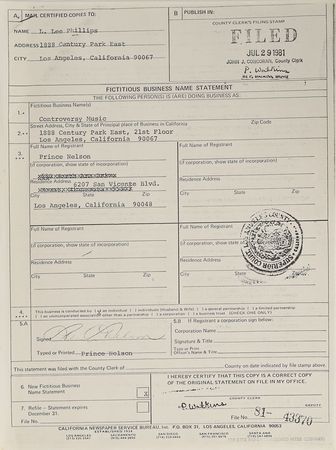 A. MAIL CERTIFIED COPIES TO:
B PUBLISH IN:
COUNTY CLERK'S FILING STAMP
NAME L. Lee Phillips
FILED
ADDRESS 1888 Century Park East
JUL 29 1981
CITY Los Angeles, California 90067
JOHN J. CORCORAN, County Clerk
P. Watkins
FICTITIOUS BUSINESS NAME STATEMENT
THE FOLLOWING PERSON(S) IS (ARE) DOING BUSINESS AS:
Fictitious Business Name(s)
1. Controversy Music
Street Address, City & State of Principal place of Business in California Zip Code
2. 1888 Century Park East, 21st Floor
Los Angeles, California 90067
3. Full Name of Registrant Full Name of Registrant
Prince Nelson
(if corporation, show state of incorporation) (if corporation, show state of incorporation)
Residence Address 6207 San Vicente Blvd. Residence Address
City State Zip
Los Angeles, California 90048
Full Name of Registrant Full Name of Registrant
(if corporation, show state of incorporation)
Residence Address Residence Address
City State Zip City
4. This business is conducted by (x) an individual ( ) individuals (Husband & Wife) ( ) a general partnership ( ) a limited partnership
( ) an unincorporated association other than a partnership ( ) a corporation ( ) a business trust (CHECK ONE ONLY)
5.A 5.B If Registrant a corporation sign below:
Corporation Name
Signed
Signature & Title
Typed or Printed Prince Nelson
Type or Print
Officer's Name & Title
This statement was filed with the County Clerk of County on date indicated by file stamp above.
6. New Fictitious Business
Name Statement X
I HEREBY CERTIFY THAT THIS COPY IS A CORRECT COPY
OF THE ORIGINAL STATEMENT ON FILE IN MY OFFICE.
COUNTY CLERK
7. Refile - Statement expires
December 31.
P. Watkins
File No.
DEPUTY
File No. 81-43370
CALIFORNIA NEWSPAPER SERVICE BUREAU, Inc. P.O. BOX 31, LOS ANGELES, CALIFORNIA 90053
ESTABLISHED 1934
SACRAMENTO
SAN FRANCISCO